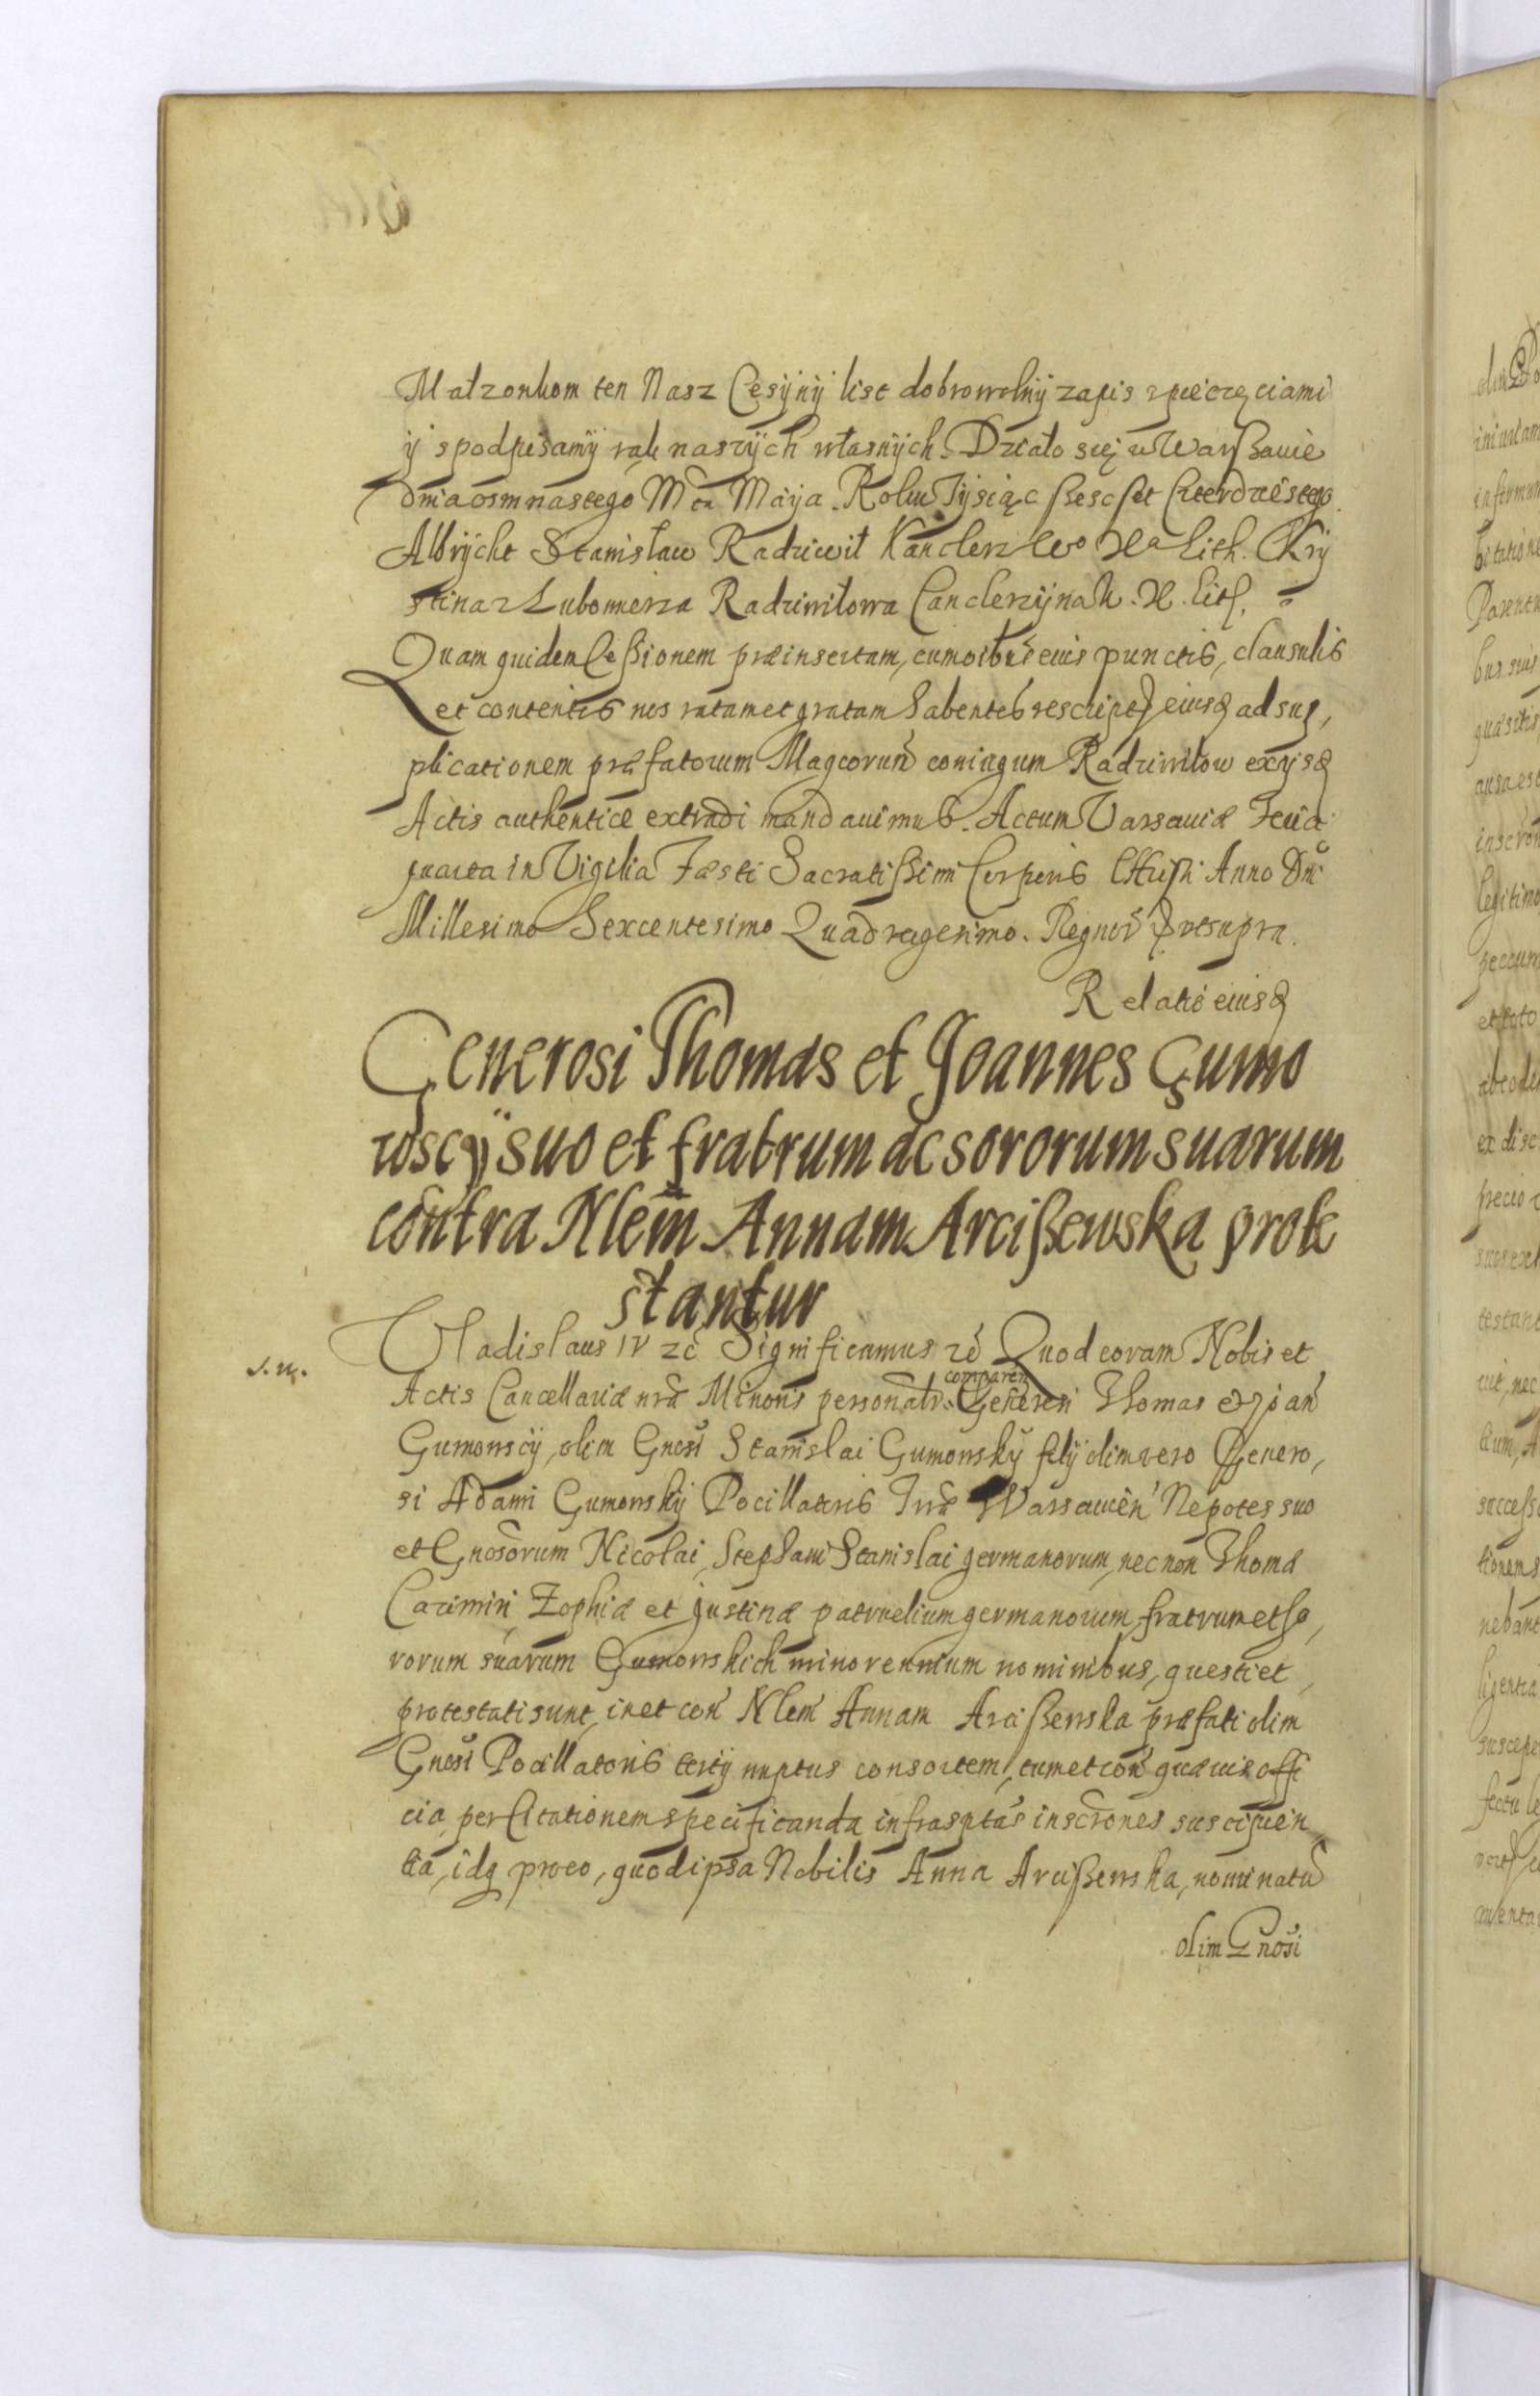 Małzonkom ten Nasz Cęsÿnÿ list dobrowolnÿ zapis zpieczęciami
ÿ spodpisamÿ rąk naszÿch własnÿch. Działo się w Warßawie
dnia osmnastego Mca Maÿa. Roku Tÿsiąc sescset Czterdziestego.
Albrÿcht Stanisław Radziwił Kanclerz Wo Xa Lith. Krÿ
stina z Lubomierza Radziwiłowa Canclerzÿna W. X. Lith.
Quam quidem Ceßionem præinsertam, cum oibus eius punctis, clausulis
et contentis nos ratam et gratam habentes rescript eiusq ad sup,
plicationem præfatorum Magcorum coniugum Radziwiłow ex ijsq
Actis authentice extradi mandauimus. Actum Varsauiæ Feria
quarta in Vigilia Fæsti Sacratißimi Corporis Chrysti Anno Dni
Millesimo Sexcentesimo Quadragesimo. Regnor ut supra.
Relatio eiusq
Generosi Thomas et Joannes Gumo
wscÿ suo et fratrum ac sororum suarum
contra Nlem Annam Arcißewska prote
stantur
J. m.
Vladislaus IV zc Significamus zc Quod coram Nobis et
Actis Cancellariæ nræ Minoris personalr comparen Generosi Thomas et Joan
Gumowscij, olim Gnosi Stanislai Gumowskÿ filÿ olim vero Genero,
si Adami Gumowskÿ Pocillatoris Træ Warsauien Nepotes suo
et Gnosorum Nicolai, Stephani Stanislai germanorum, nec non Thomæ
Casimiri, Zophiæ et Justinæ patruelium germanorum fratrum et so,
rorum suarum Gumowskich minorennium nominibus, questi et
protestati sunt, in et con Nlem Annam Arcißewska præfati olim
Gnosi Pocillatoris tertÿ nuptus consortem, tum et con quæuis offi
cia per Citationem specificanda infrascptas inscrones suscipien
tia, idq pro eo, quod ipsa Nobilis Anna Arcißewska, nominatu
olim Gnosi